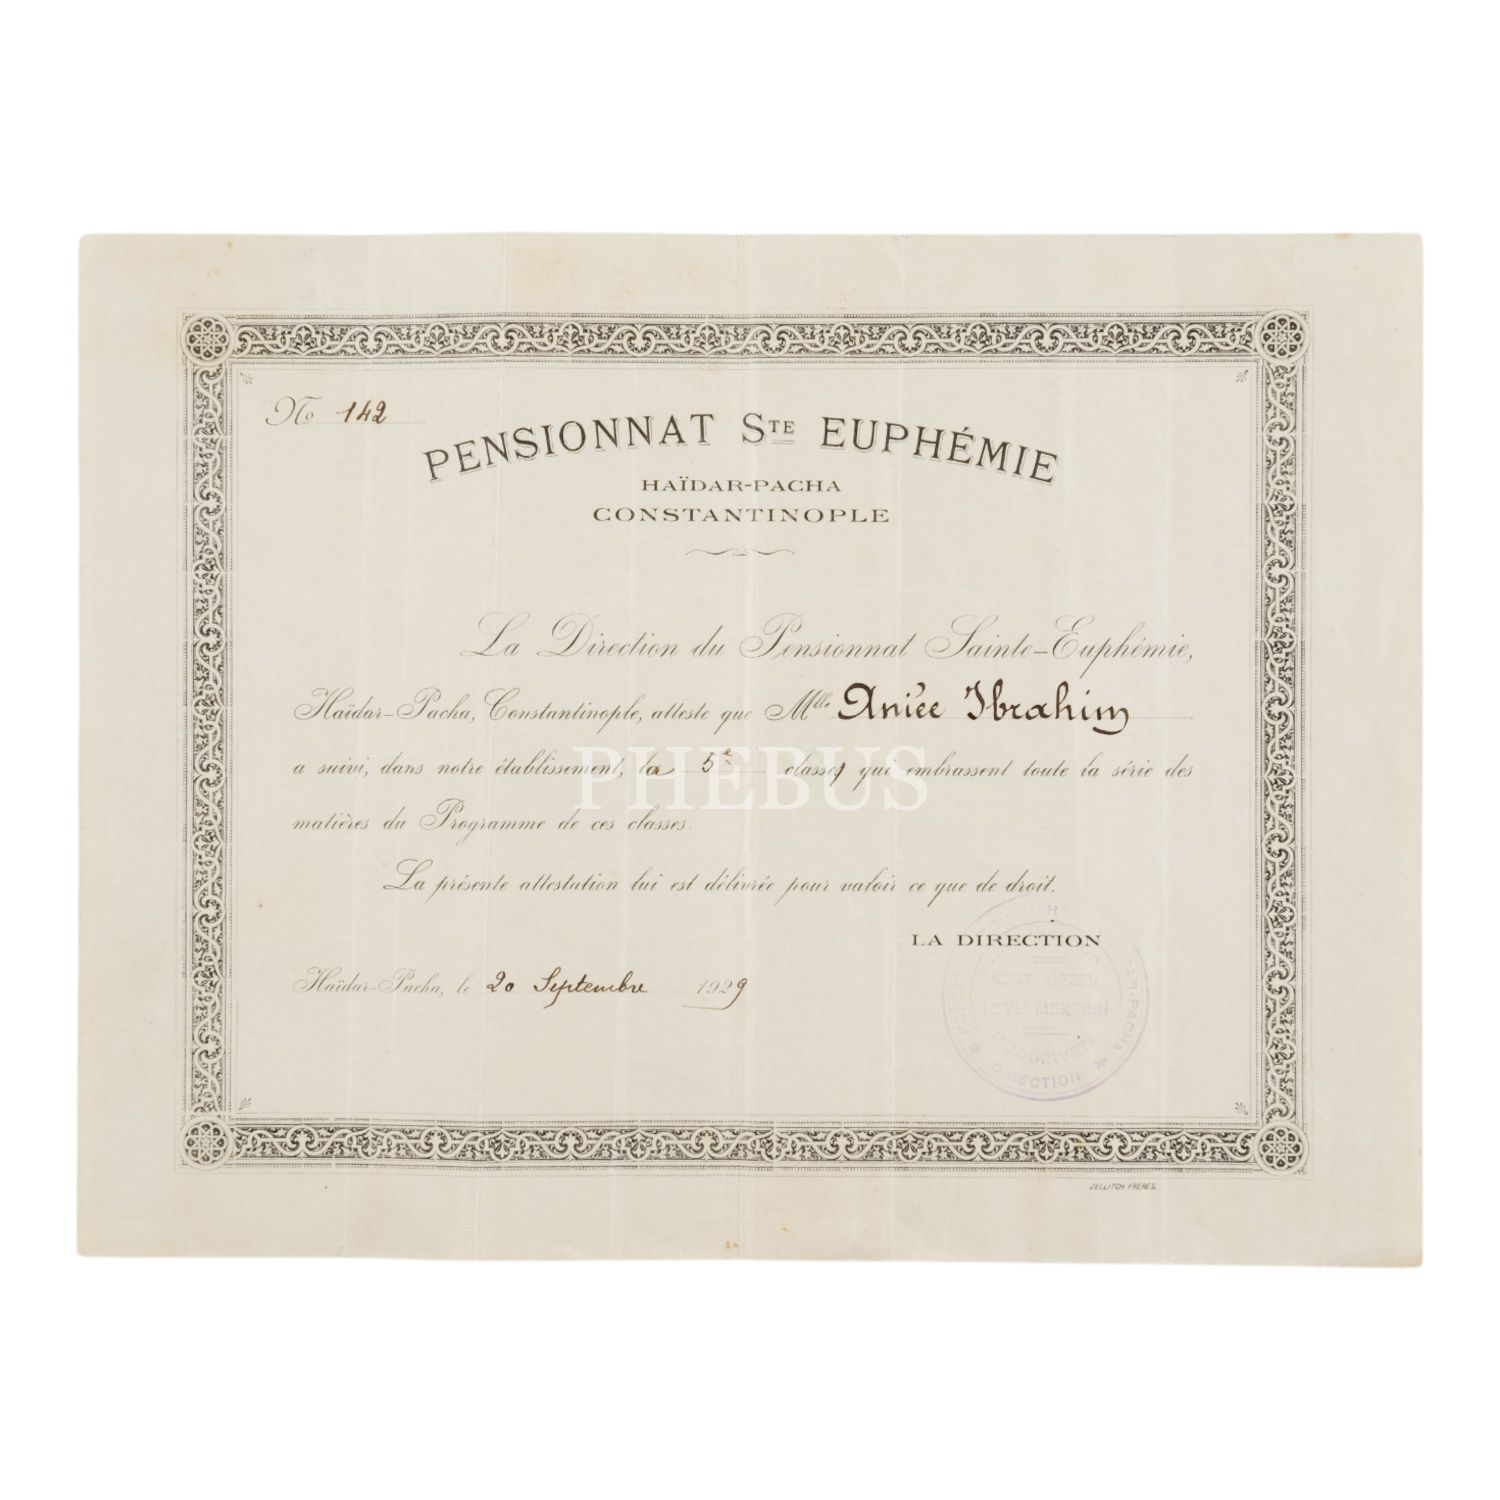 No 142
PENSIONNAT STE EUPHÉMIE
HAÏDAR-PACHA
CONSTANTINOPLE
La Direction du Pensionnat Sainte-Euphémie,
Haïdar-Pacha, Constantinople, atteste que Mlle Aniée Ibrahim
a suivi, dans notre établissement, la 5e classes qui embrassent toute la série des
PHEBUS
matières du Programme de ces classes.
La présente attestation lui est délivrée pour valoir ce que de droit.
LA DIRECTION
Haïdar-Pacha, le 20 Septembre 1929
DIRECTION
ZELLITCH FRÈRES.